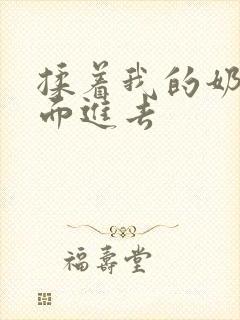 揉着我的奶
而进去
福寿堂